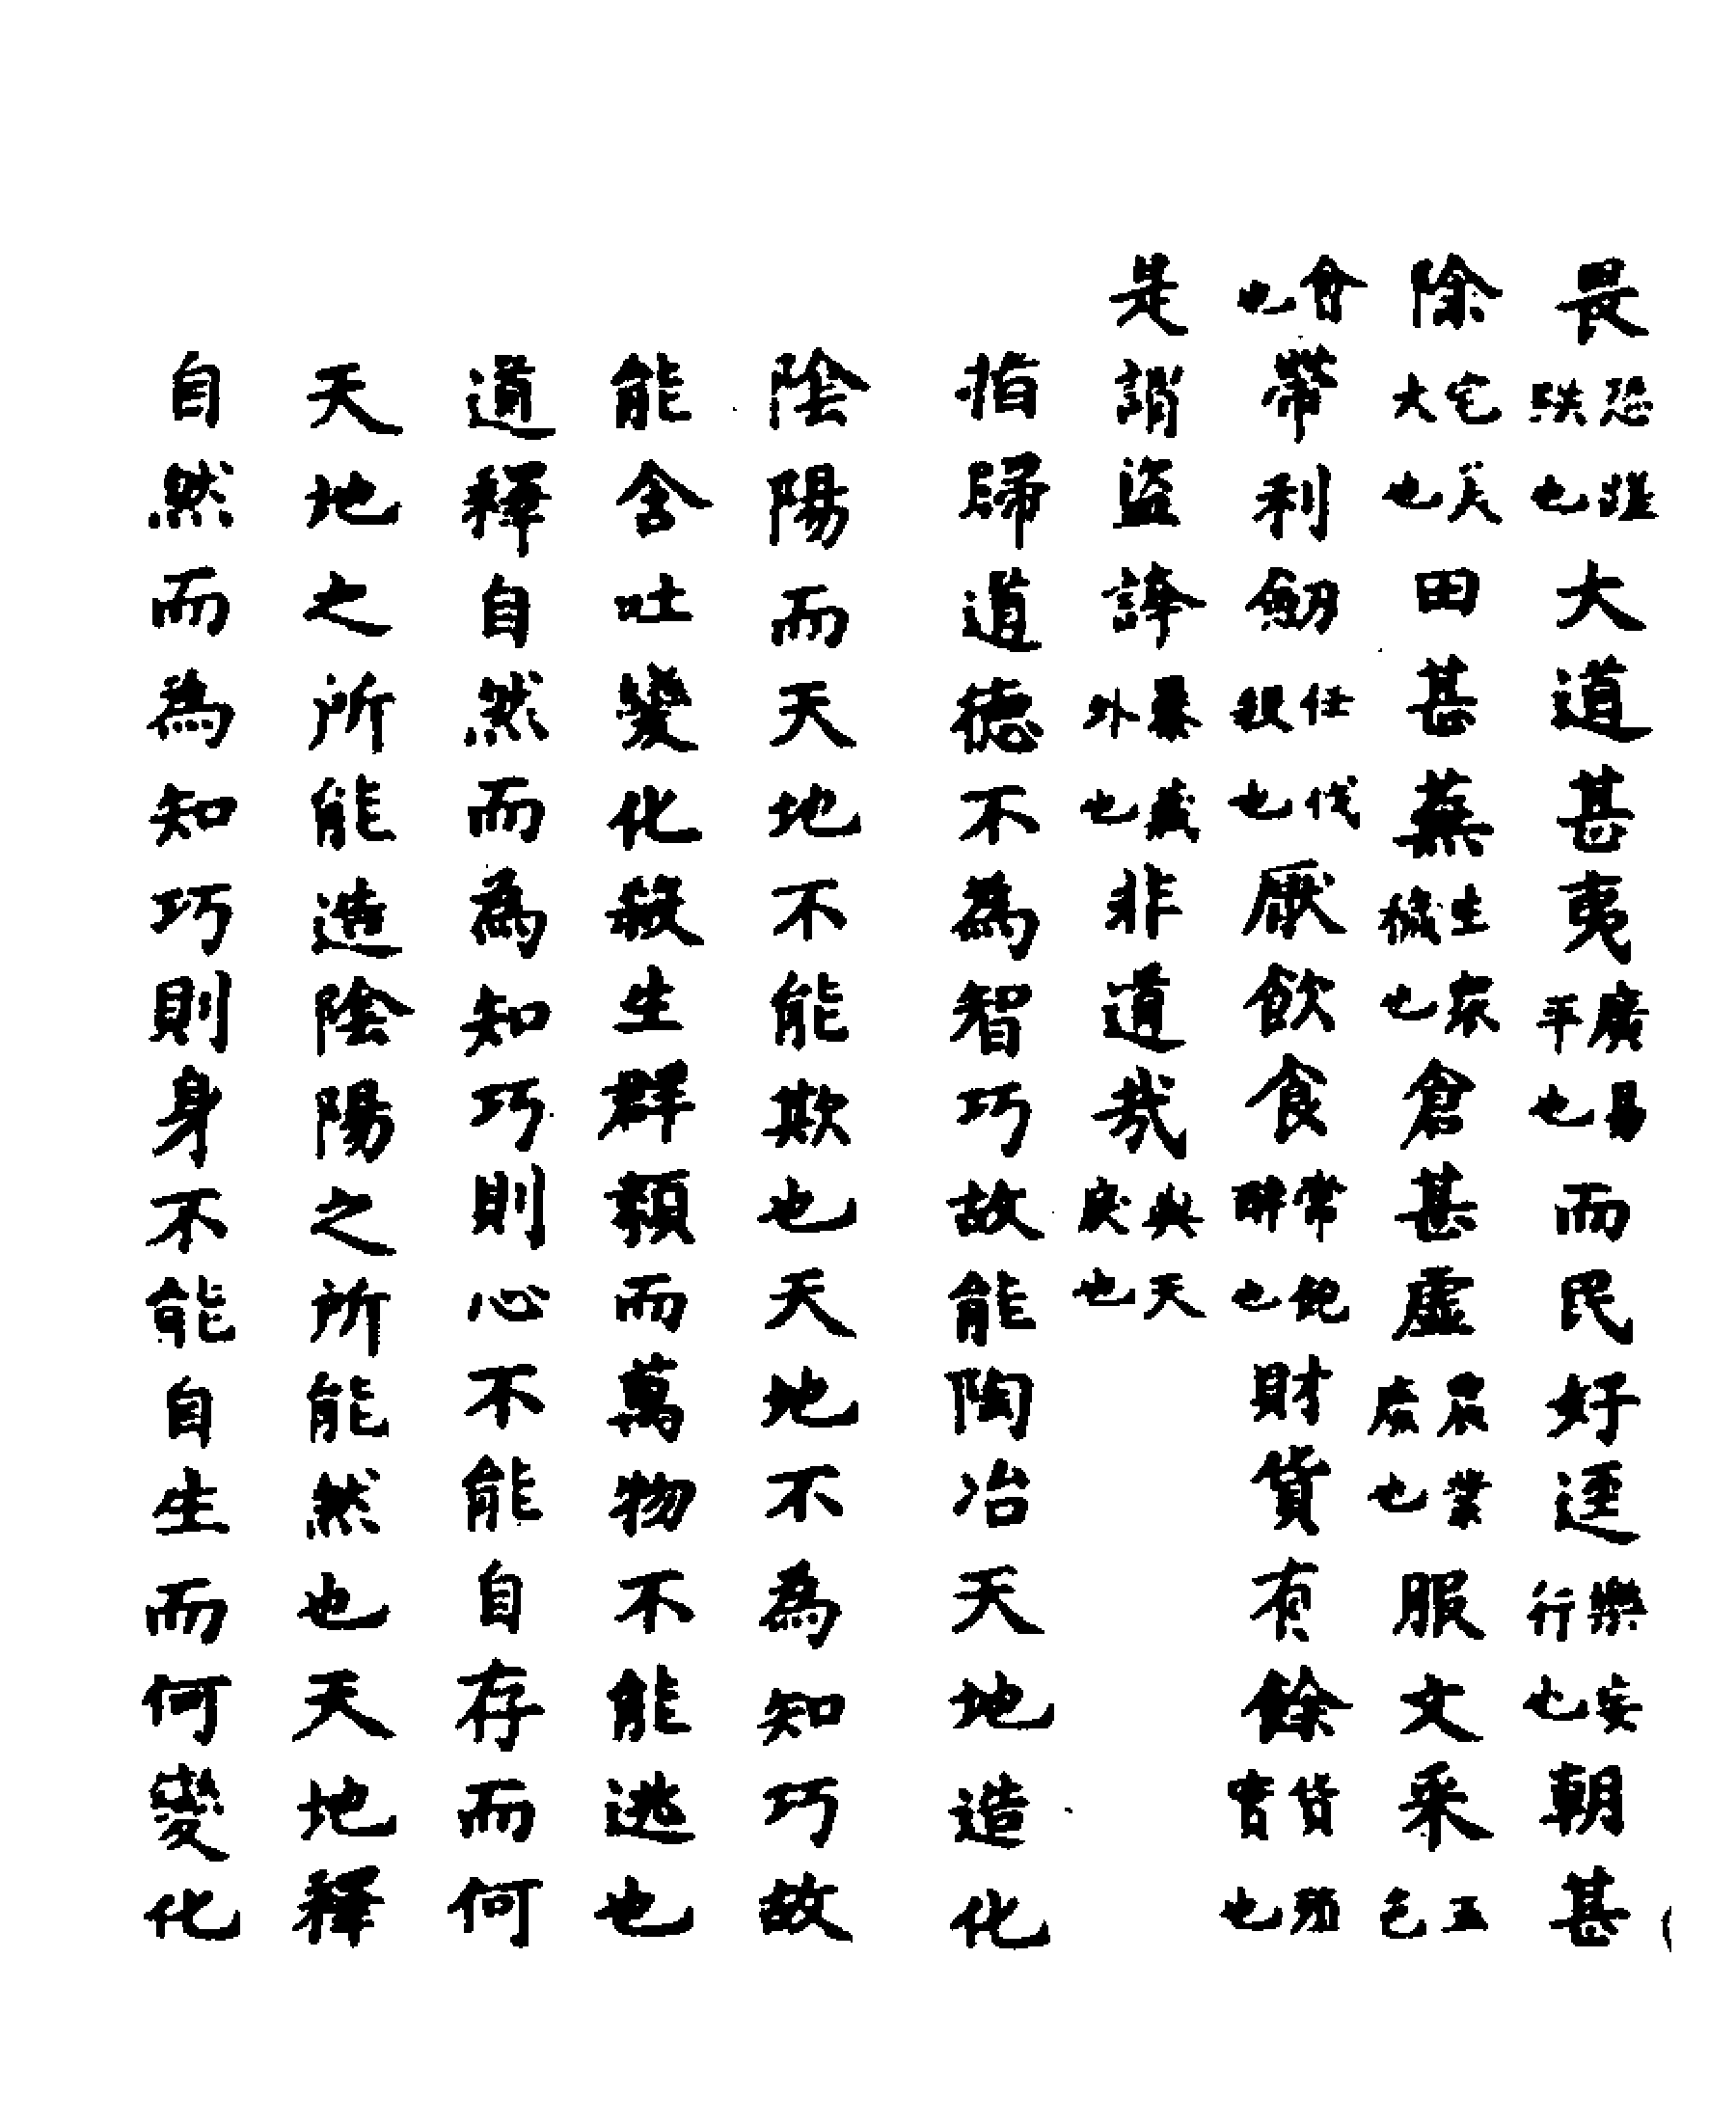 畏恐蹉跌也大道甚夷廣易平也而民好逕樂安行也朝甚
除宅美大也田甚蕪生衆穢也倉甚虛農業廢也服文采五色
會也帶利劒任伐殺也厭飲食常飽醉也財貨有餘貨殖也
是謂盜誇暴藏外也非道哉與天戾也
指歸道德不為智巧故能陶冶天地造化
陰陽而天地不能欺也天地不為知巧故
能含吐變化殺生群類而萬物不能逃也
道釋自然而為知巧則心不能自存而何
天地之所能造陰陽之所能然也天地釋
自然而為知巧則身不能自生而何變化